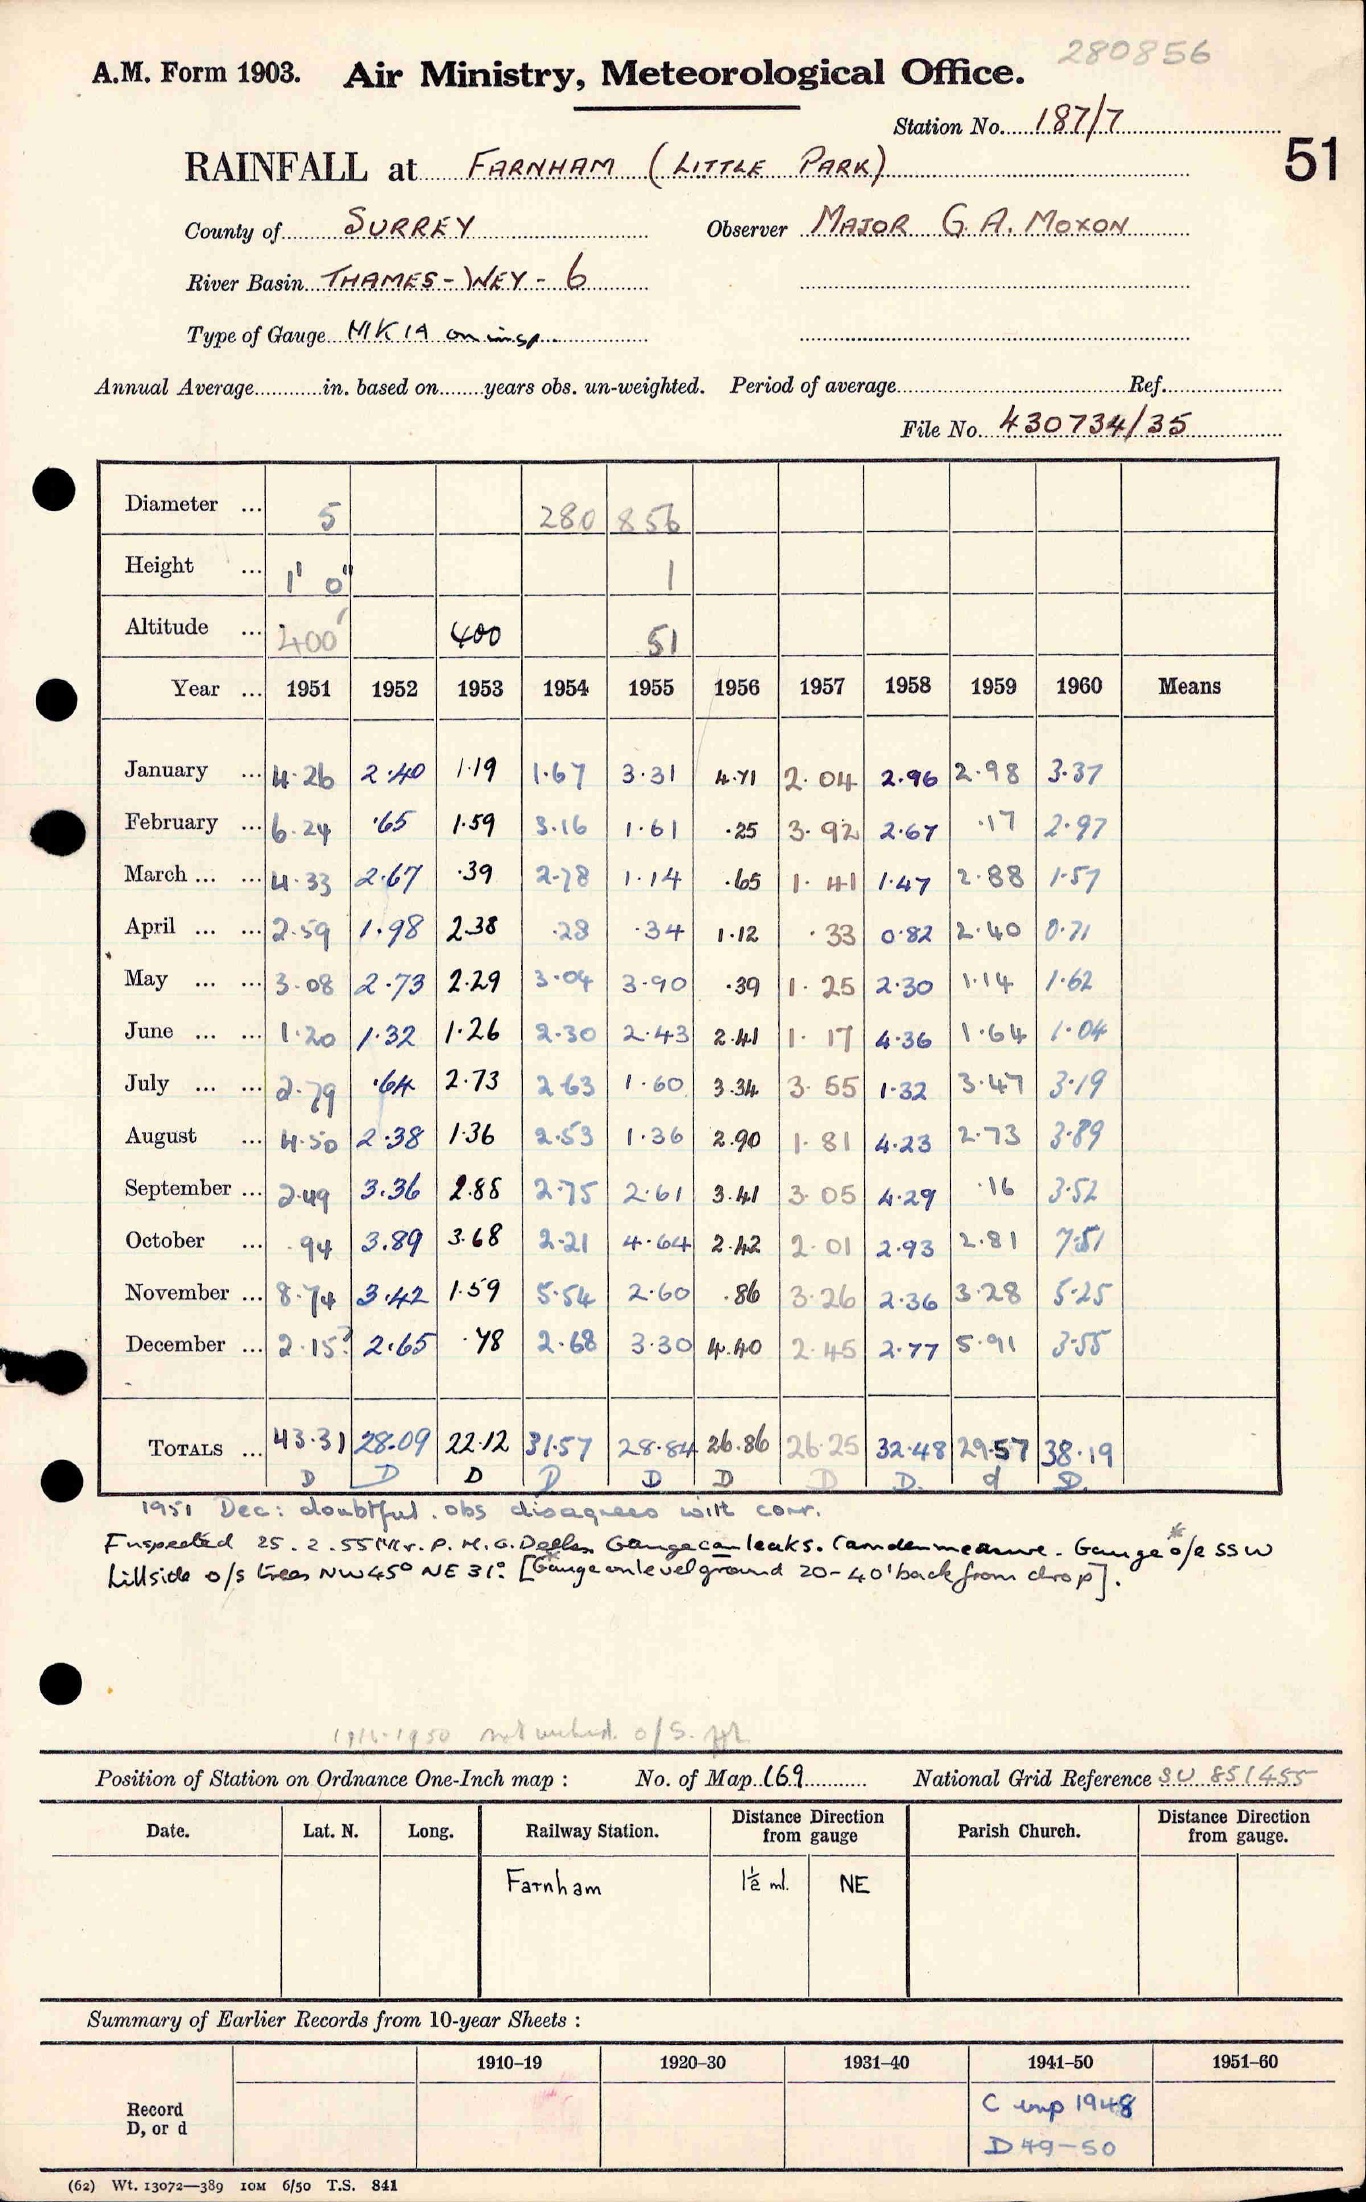 280856
A.M. Form 1903. Air Ministry, Meteorological Office.
Station No. 187/7
51
RAINFALL at FARNHAM (LITTLE PARK)
County of SURREY Observer MAJOR G. A. MOXON
River Basin THAMES - WEY - 6
Type of Gauge MK 1A on insp.
Annual Average in. based on years obs. un-weighted. Period of average Ref.
File No. 430734/35
Diameter ... 5 280 856
Height ... 1' 0" 1
Altitude ... 400' 400 51
Year ... 1951 1952 1953 1954 1955 1956 1957 1958 1959 1960 Means
January ... 4.26 2.40 1.19 1.67 3.31 4.71 2.04 2.96 2.98 3.37
February ... 6.24 .65 1.59 3.16 1.61 .25 3.92 2.67 .17 2.97
March ... ... 4.33 2.67 .39 2.78 1.14 .65 1.41 1.47 2.88 1.57
April ... ... 2.59 1.98 2.38 .28 .34 1.12 .33 0.82 2.40 0.71
May ... ... 3.08 2.73 2.29 3.04 3.90 .39 1.25 2.30 1.14 1.62
June ... ... 1.20 1.32 1.26 2.30 2.43 2.41 1.17 4.36 1.64 1.04
July ... ... 2.79 .64 2.73 2.63 1.60 3.34 3.55 1.32 3.47 3.19
August ... 4.50 2.38 1.36 2.53 1.36 2.90 1.81 4.23 2.73 3.89
September ... 2.49 3.36 2.88 2.75 2.61 3.41 3.05 4.29 .16 3.52
October ... .94 3.89 3.68 2.21 4.64 2.42 2.01 2.93 2.81 7.51
November ... 8.74 3.42 1.59 5.54 2.60 .86 3.26 2.36 3.28 5.25
December ... 2.15? 2.65 .78 2.68 3.30 4.40 2.45 2.77 5.91 3.55
TOTALS ... 43.31 28.09 22.12 31.57 28.84 26.86 26.25 32.48 29.57 38.19
D D D D D D D D. d D.
1951 Dec: doubtful. obs disagrees with corr.
Inspected 25.2.55 Mr. P. M. G. Gauge can leaks. Camden measure. Gauge* o/e SSW
hillside o/s trees NW 45° NE 31°. [*Gauge on level ground 20-40' back from drop].
1950 o/s.
Position of Station on Ordnance One-Inch map : No. of Map 169 National Grid Reference SU 851455
Date. Lat. N. Long. Railway Station. Distance Direction from gauge Parish Church. Distance Direction from gauge.
Farnham 1½ ml. NE
Summary of Earlier Records from 10-year Sheets :
1910–19 1920–30 1931–40 1941–50 1951–60
Record D, or d
C imp 1948
D 49–50
(62) Wt. 13072—389 10M 6/50 T.S. 841